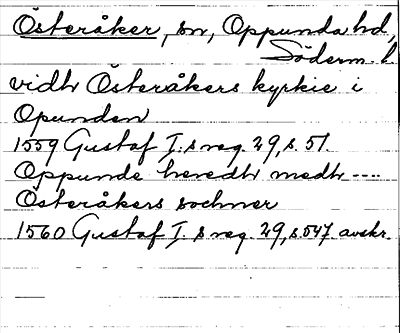 Österåker, sn, Oppunda hd,
Söderm. l.
vidh Österåkers kyrkie i
Opunden
1559 Gustaf I. s reg. 29, s. 51.
Oppunde heredh medh ----
Österåkers sochner
1560 Gustaf I. s reg. 29, s. 547. avskr.